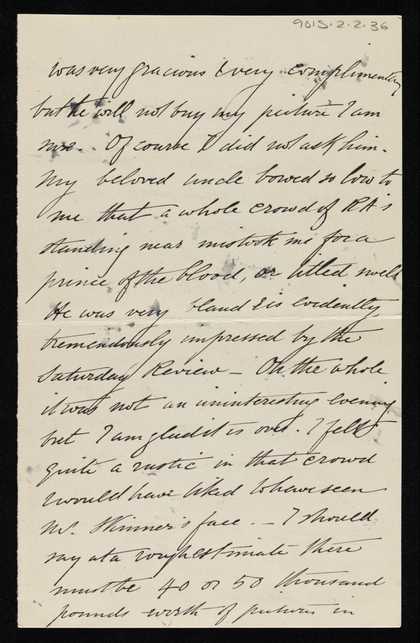 9015-2-2-36
was very gracious & very complimentary
but he will not buy my picture I am
sure. Of course I did not ask him.
My beloved uncle bowed so low to
me that a whole crowd of RA's
standing near mistook me for a
prince of the blood, or titled
He was very bland & is evidently
tremendously impressed by the
Saturday Review – On the whole
it was not an uninteresting evening
but I am glad it is over. I felt
quite a rustic in that crowd
I would have liked to have seen
Mr. Skinner's face. – I should
say at a rough estimate there
must be 40 or 50 thousand
pounds worth of pictures in